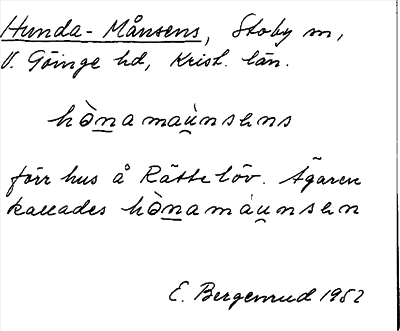 Hunda-Månsens, Stoby sn,
V. Göinge hd, Krist. län.
hònamaùnsəns
förr hus å Rättelöv. Ägaren
kallades hònamàunsən
E. Bergenrud 1952